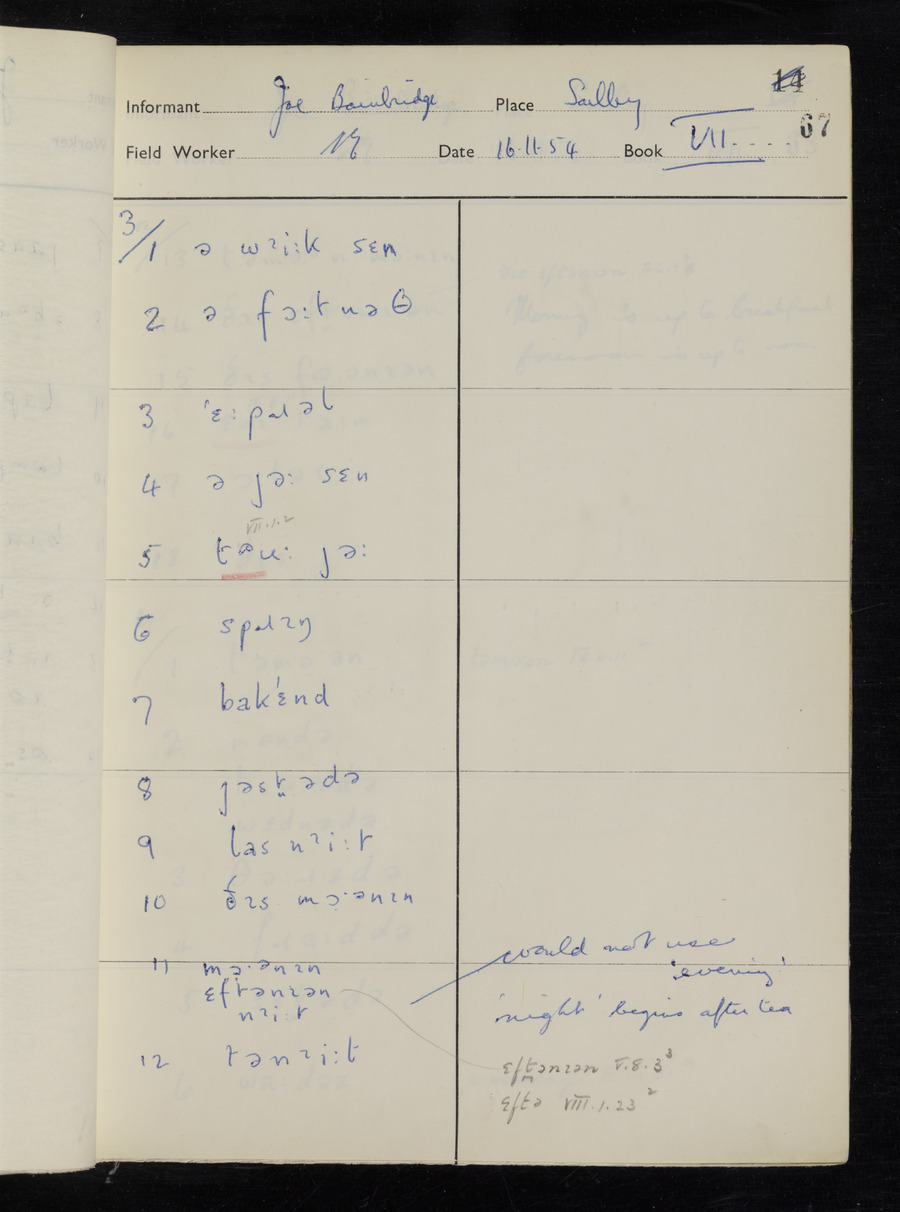 14
Informant Joe Bainbridge Place Sulby
67
Field Worker Date 16.11.54 Book VII
3/1 ə wɪi:k sɛn
2 ə fɔ:tnəθ
3 'ɛ:pɹəl
4 ə jə: sɛn
VII.1.2
5 təu: jə:
6 spɹɪŋ
7 bak'ɛnd
8 jəst̪ədə
9 las nɪi:t
10 ðɪs mɔ·ənɪn
11 mɔ·ənɪn
ɛftənɪən
nɪi:t
12 tənɪi:t
would not use
'evening'
'night' begins after tea
ɛft̪ənɪən V.8.3³
ɛftə VIII.1.23²